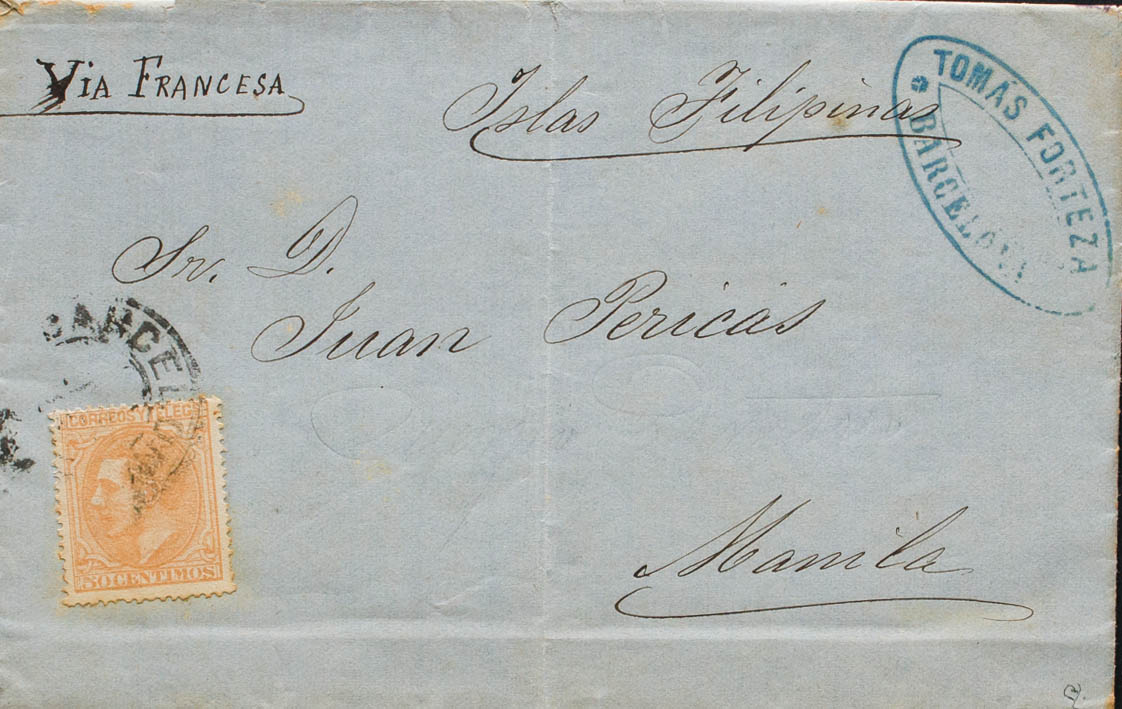 VIA FRANCESA
Islas Filipinas
TOMÁS FORTEZA
BARCELONA
Sr. D.
Juan Pericás
BARCEL
CORREOS Y TELEG
50 CENTIMOS
Manila